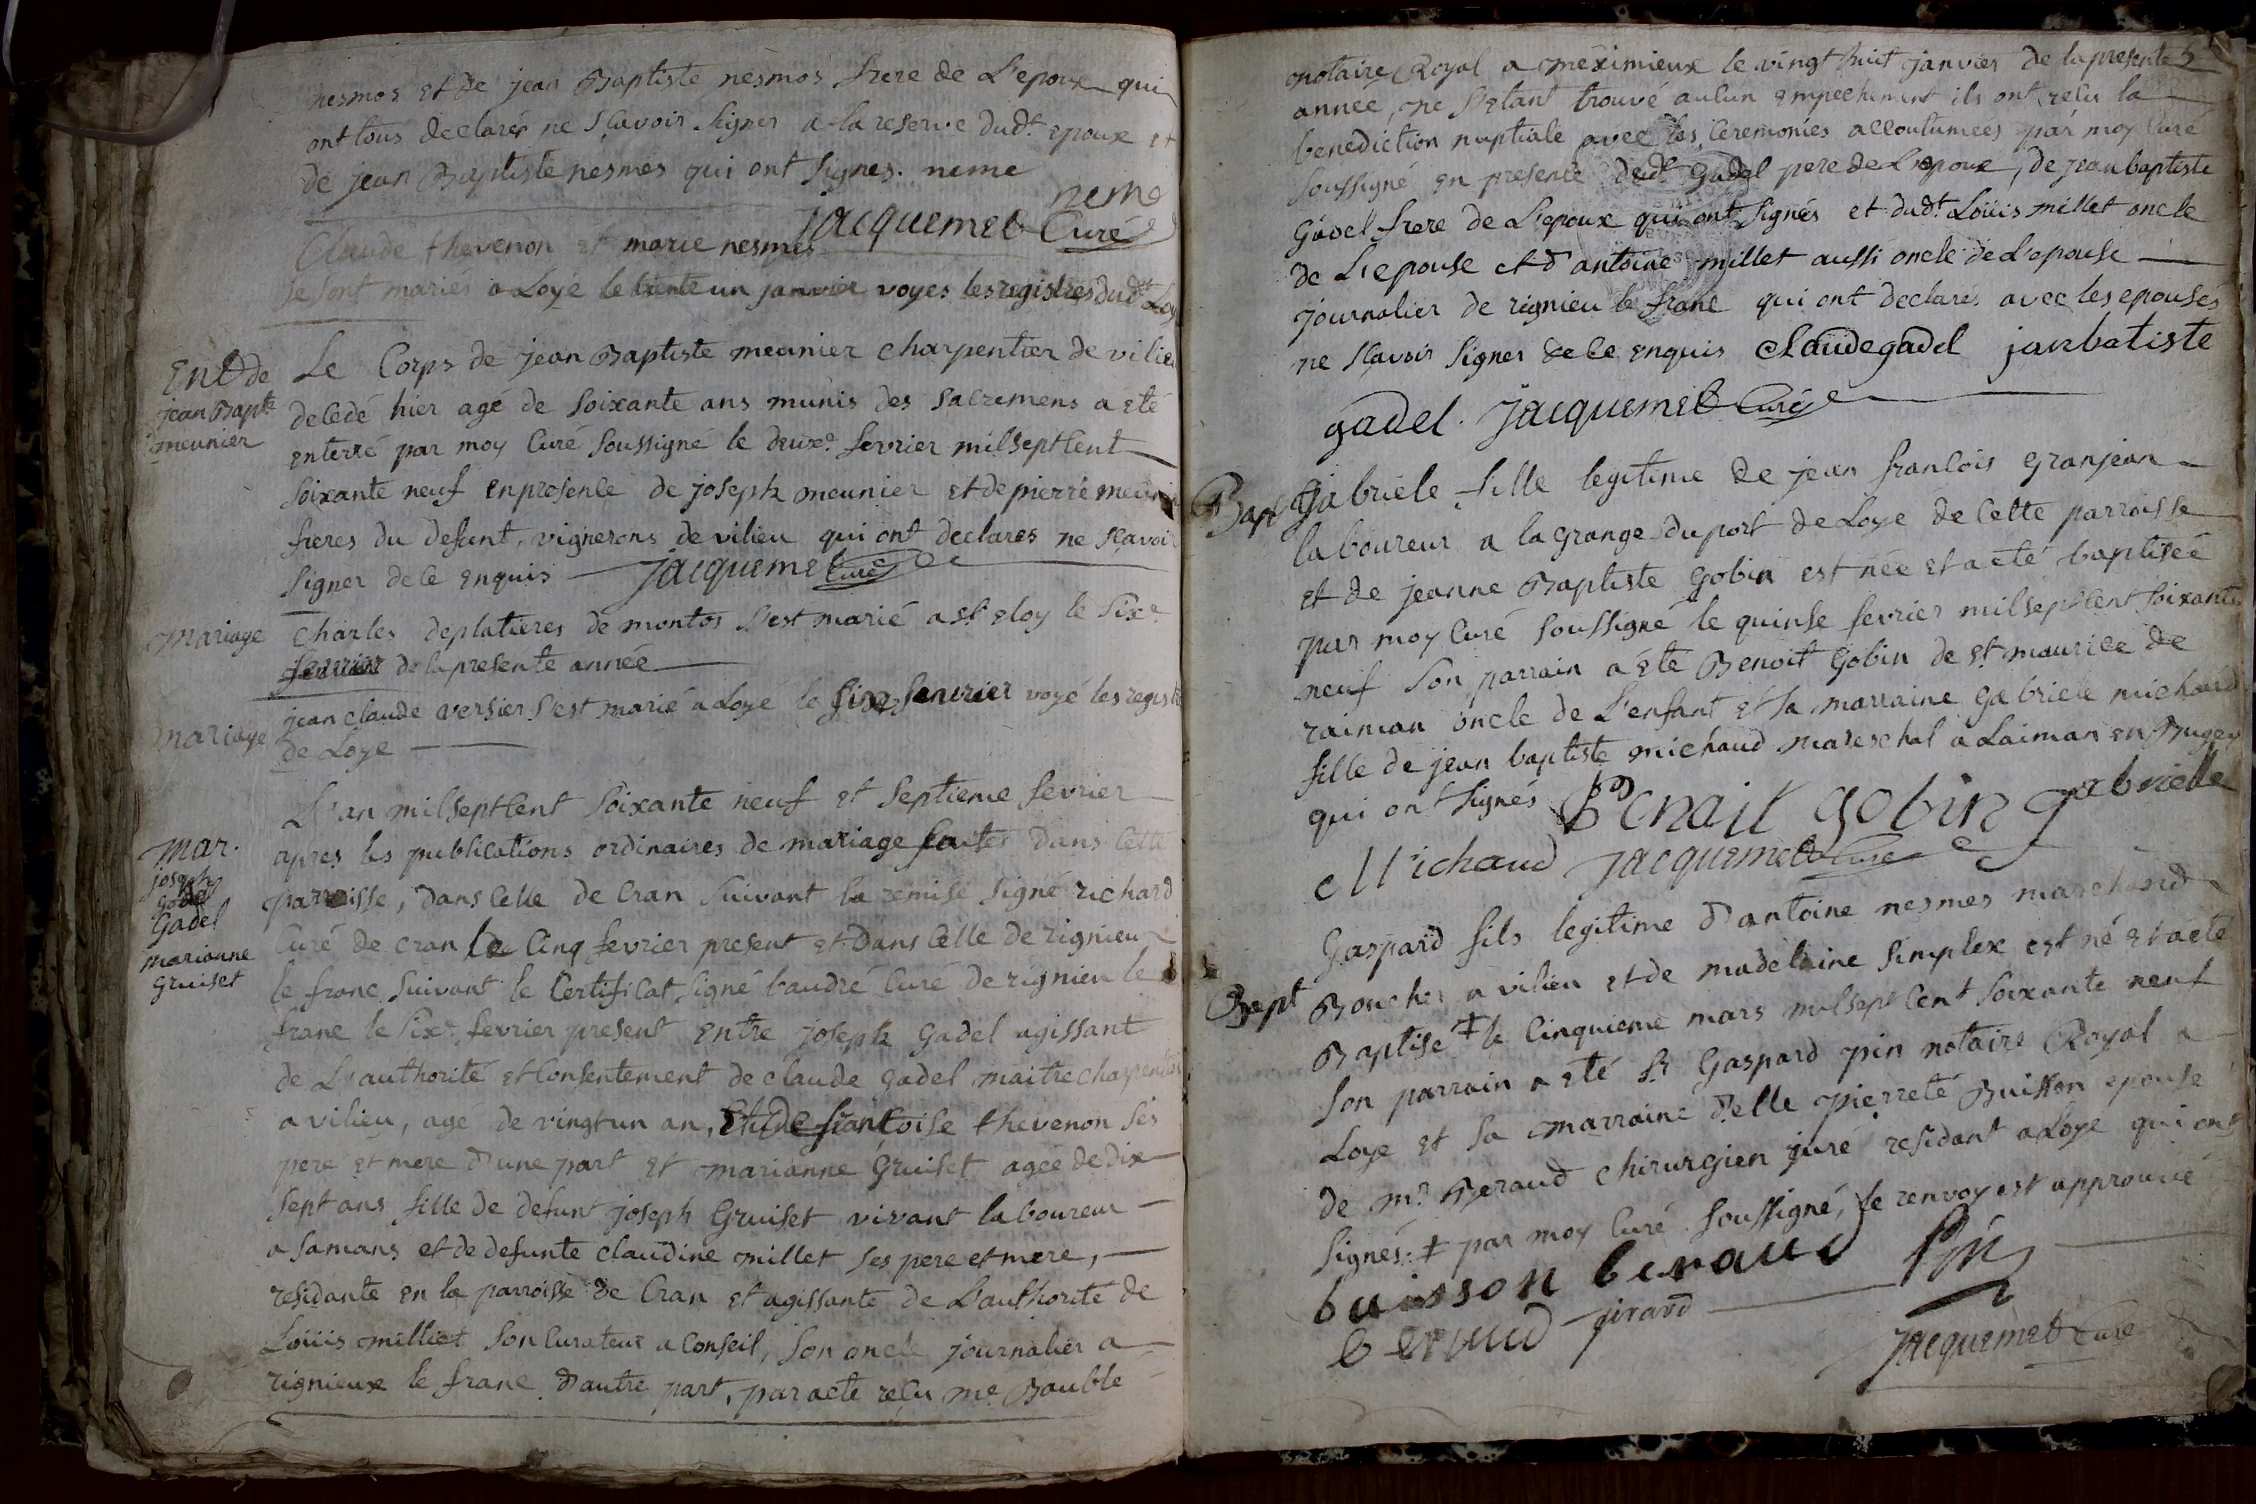 nesmos et de jean Baptiste nesmos frere de L'epoux qui
ont tous declarés ne sçavoir signer a la reserve dudt. epoux et
de jean Baptiste nesmes qui ont signés. neme
neme
jacquemet Curé
Claude thevenon et marie nesmes
se sont mariés a Loye le trente un janvier voyes les registres dudt Loy
Ent. de
jean Bapte
meunier
Le Corps de jean Baptiste meunier charpentier de vilieu
decedé hier agé de soixante ans munis des sacremens a eté
enterré par moy Curé soussigné le deuxe. fevrier milseptcent
soixante neuf en presence de joseph meunier et de pierre meuni
freres du defunt, vignerons de vilieu qui ont declares ne sçavoir
signer de ce enquis jacquemet Curé
mariage
Charles deplatieres de montos s'est marié a st. eloy le sixe.
fevrier de la presente année
mariage
jean claude versier s'est marié a Loye le six fevrier voyé les regist
de Loye
mar.
joseph
Gadel
marianne
gruiset
L'an milseptcent soixante neuf et septieme fevrier
apres les publications ordinaires de mariage faites dans cette
parroisse, dans celle de Cran suivant la remise signé richard
Curé de cran le cinq fevrier present et dans celle de rignieu
le franc suivant le Certificat signé baudré Curé de rignieu le
franc le sixe. fevrier present entre joseph gadel agissant
de L'authorité et Consentement de claude gadel maitre charpentier
a vilieu, agé de vingt un an, et de francoise thevenon ses
pere et mere d'une part et marianne Gruiset agée de dix
sept ans fille de defunt joseph Gruiset vivant laboureur
a samans et de defunte claudine millet ses pere et mere,
residante en la parroisse de Cran et agissante de L'authorité de
Loüis milliet son Curateur a Conseil, son oncle journalier a
rignieux le franc d'autre part, par acte reçu me. Bouble
notaire Royal a meximieux le vingt huit janvier de la presente 5
annee, ne s'etant trouvé aucun empechement ils ont reçu la
benediction nuptiale avec les Ceremonies accoutumées par moy Curé
soussigné en presence dudt. Gadel pere de L'epoux, de jean baptiste
Gadel frere de L'epoux qui ont signés et dudt. Loüis millet oncle
de L'epouse et d'antoine millet aussi oncle de L'epouse
journalier de rignieu le franc qui ont declarés avec les epouses
ne sçavoir signer de ce enquis claüdegadel janbatiste
gadel. jacquemet Curé
Bapt
Gabriele fille legitime de jean francois granjean
laboureur a la grange du port de Loye de cette parroisse
et de jeanne Baptiste Gobin est née et a eté baptisée
par moy Curé soussigné le quinse fevrier milseptcent soixante
neuf son parrain a eté Benoit Gobin de st. maurice de
raiman oncle de L'enfant et sa marraine Gabriele michaud
fille de jean baptiste michaud mareschal a Laiman en Bugey
qui ont signés Benait gobin gabrielle
Michaud jacquemet Curé
Bapt
Gaspard fils legitime d'antoine nesmes marchand
Boucher a vilieu et de madelaine simplex est né et a eté
Baptisé ‡ le cinquieme mars milseptcent soixante neuf
son parrain a eté sr. Gaspard pin notaire Royal a
Loye et sa marraine delle pierrete Buisson epouse
de mr. Beraud chirurgien juré residant a Loye qui ont
signés. ‡ par moy Curé soussigné, le renvoy est approuvé
buisson beraud Pin
beraud girard
jacquemet Curé